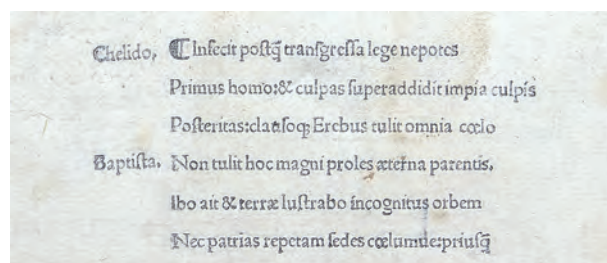 Chelido, ⸿ Infecit poſtq̃ tranſgreſſa lege nepotes
Primus homo:& culpas ſuperaddidit impia culpis
Poſteritas:clauſoqꝫ Erebus tulit omnia cœlo
Baptiſta, Non tulit hoc magni proles æterna parentis,
Ibo ait & terræ luſtrabo incognitus orbem
Nec patrias repetam ſedes cœlumue:priuſq̃